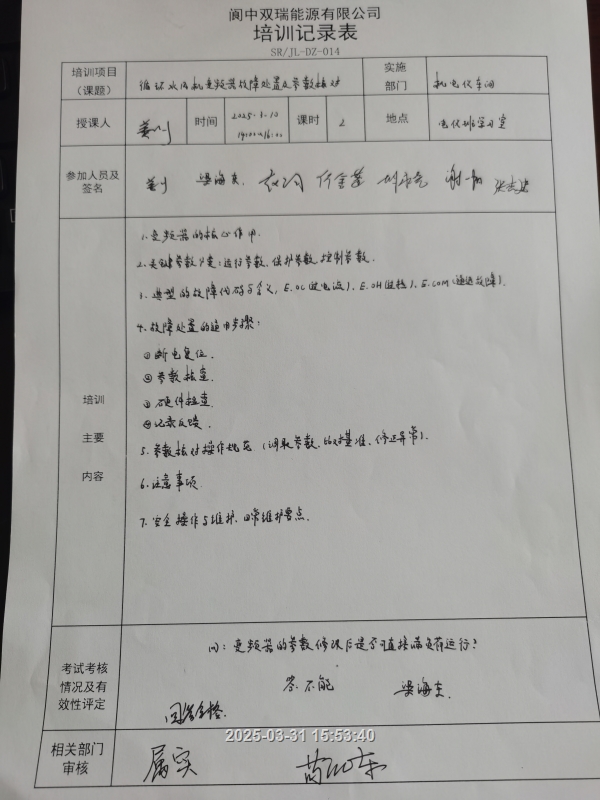 阆中双瑞能源有限公司
培训记录表
SR/JL-DZ-014
培训项目（课题） 循环水风机变频器故障处置及参数核对 实施部门 机电仪车间
授课人 时间 课时 2 地点 电仪班学习室
参加人员及签名 梁海东
培训主要内容
1.变频器的核心作用.
2.关键参数分类:运行参数、保护参数、控制参数.
3.典型的故障代码与含义, E.OC(过电流)、E.OH(过热)、E.COM(通讯故障).
4.故障处置的通用步骤:
①断电复位.
②参数核查.
③硬件检查.
④记录反馈.
5.参数核对操作规范 (调取参数、比对基准、修正异常).
6.注意事项.
7.安全操作与维护.日常维护要点.
考试考核情况及有效性评定
问:变频器的参数修改后是否可直接满负荷运行?
答:不能 梁海东.
回答合格.
2025-03-31 15:53:40
相关部门审核 属实